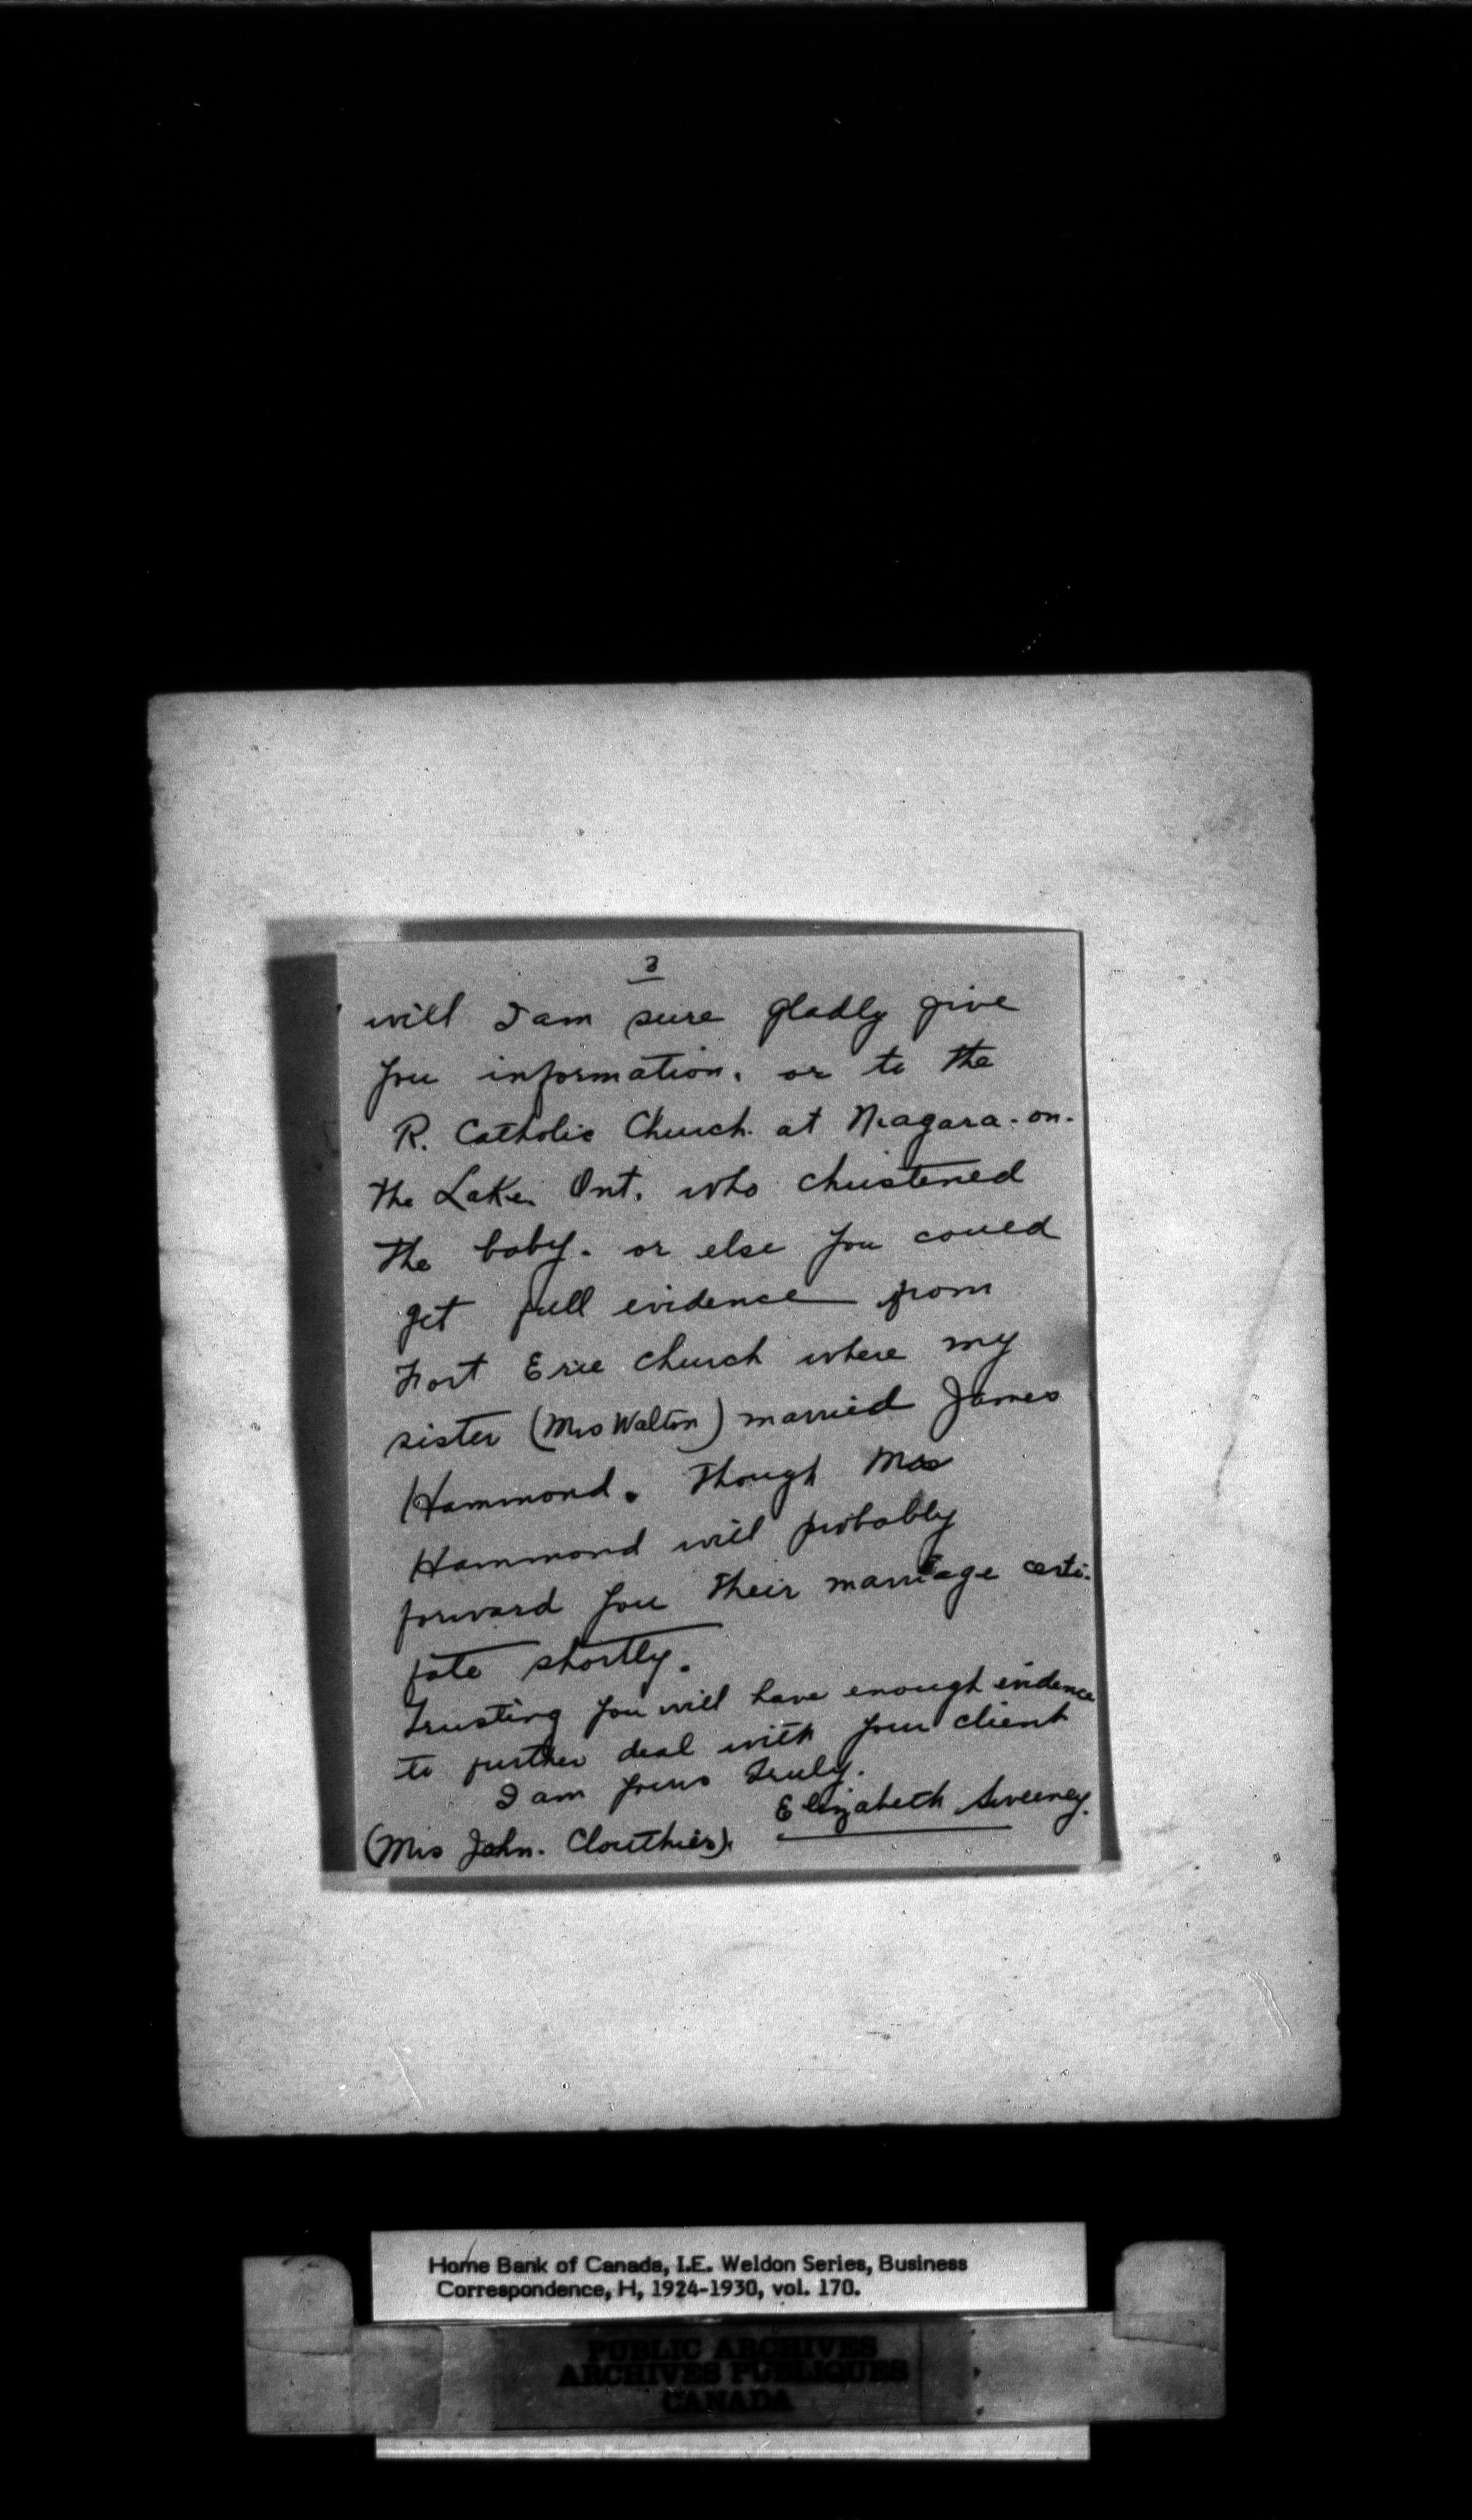 3
will I am sure gladly give
you information. or to the
R. Catholic Church. at Niagara-on-
the Lake. Ont. who christened
the baby. or else you could
get full evidence from
Fort Erie church where my
sister (Mrs Walton) married James
Hammond. Though Mrs
Hammond will probably
forward you their marriage certi-
fate shortly.
Trusting you will have enough evidence
to further deal with your client
I am yours truly.
Elizabeth Sweeney.
(Mrs John. Clouthier).
Home Bank of Canada, I.E. Weldon Series, Business
Correspondence, H, 1924-1930, vol. 170.
PUBLIC ARCHIVES
ARCHIVES PUBLIQUES
CANADA